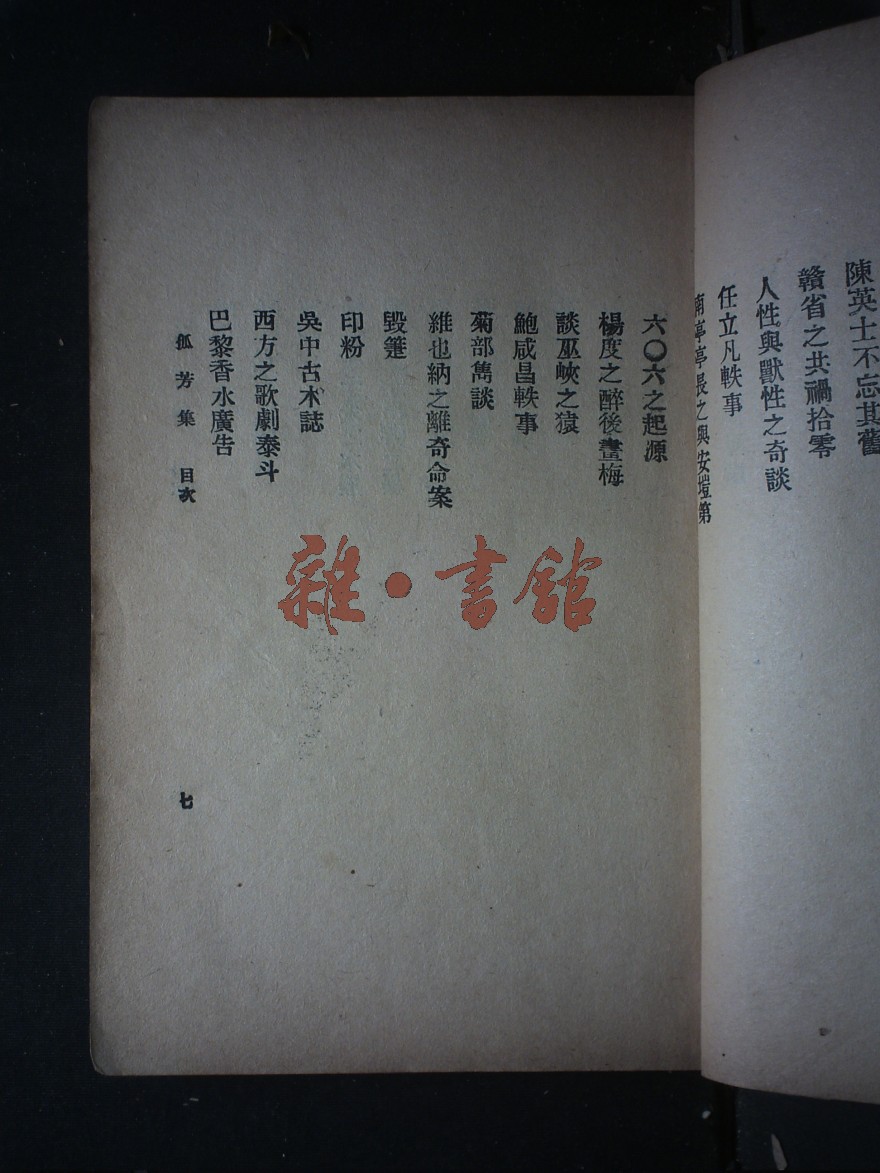 陳英士不忘其舊
贛省之共禍拾零
人性與獸性之奇談
任立凡軼事
南亭亭長之與安塏第
六〇六之起源
楊度之醉後畫梅
談巫峽之猿
鮑咸昌軼事
菊部雋談
維也納之離奇命案
毀箑
印粉
吳中古木誌
西方之歌劇泰斗
巴黎香水廣告
孤芳集 目次
七
雜·書館